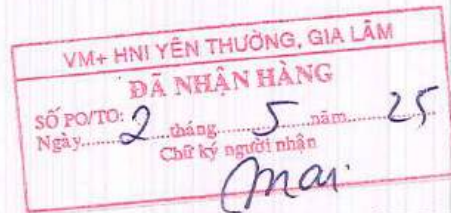 VM+ HNI YÊN THƯỜNG, GIA LÂM
ĐÃ NHẬN HÀNG
SỐ PO/TO:
Ngày......2......tháng......5......năm......25
Chữ ký người nhận
Mai